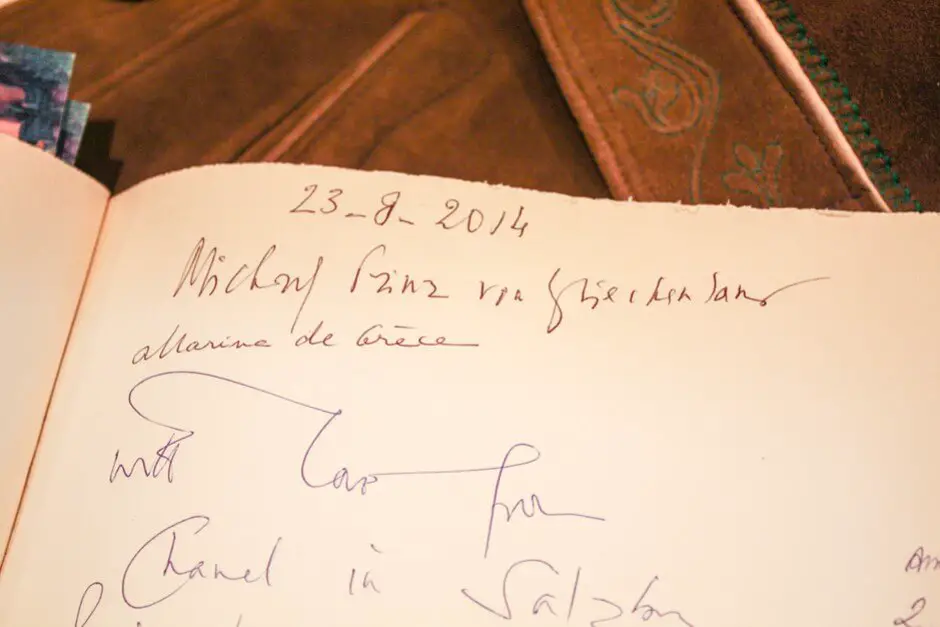 23-8-2014
Michael Prinz von Griechenland
Marina de Grèce
with Love from
Chanel in Salzbu
An
2